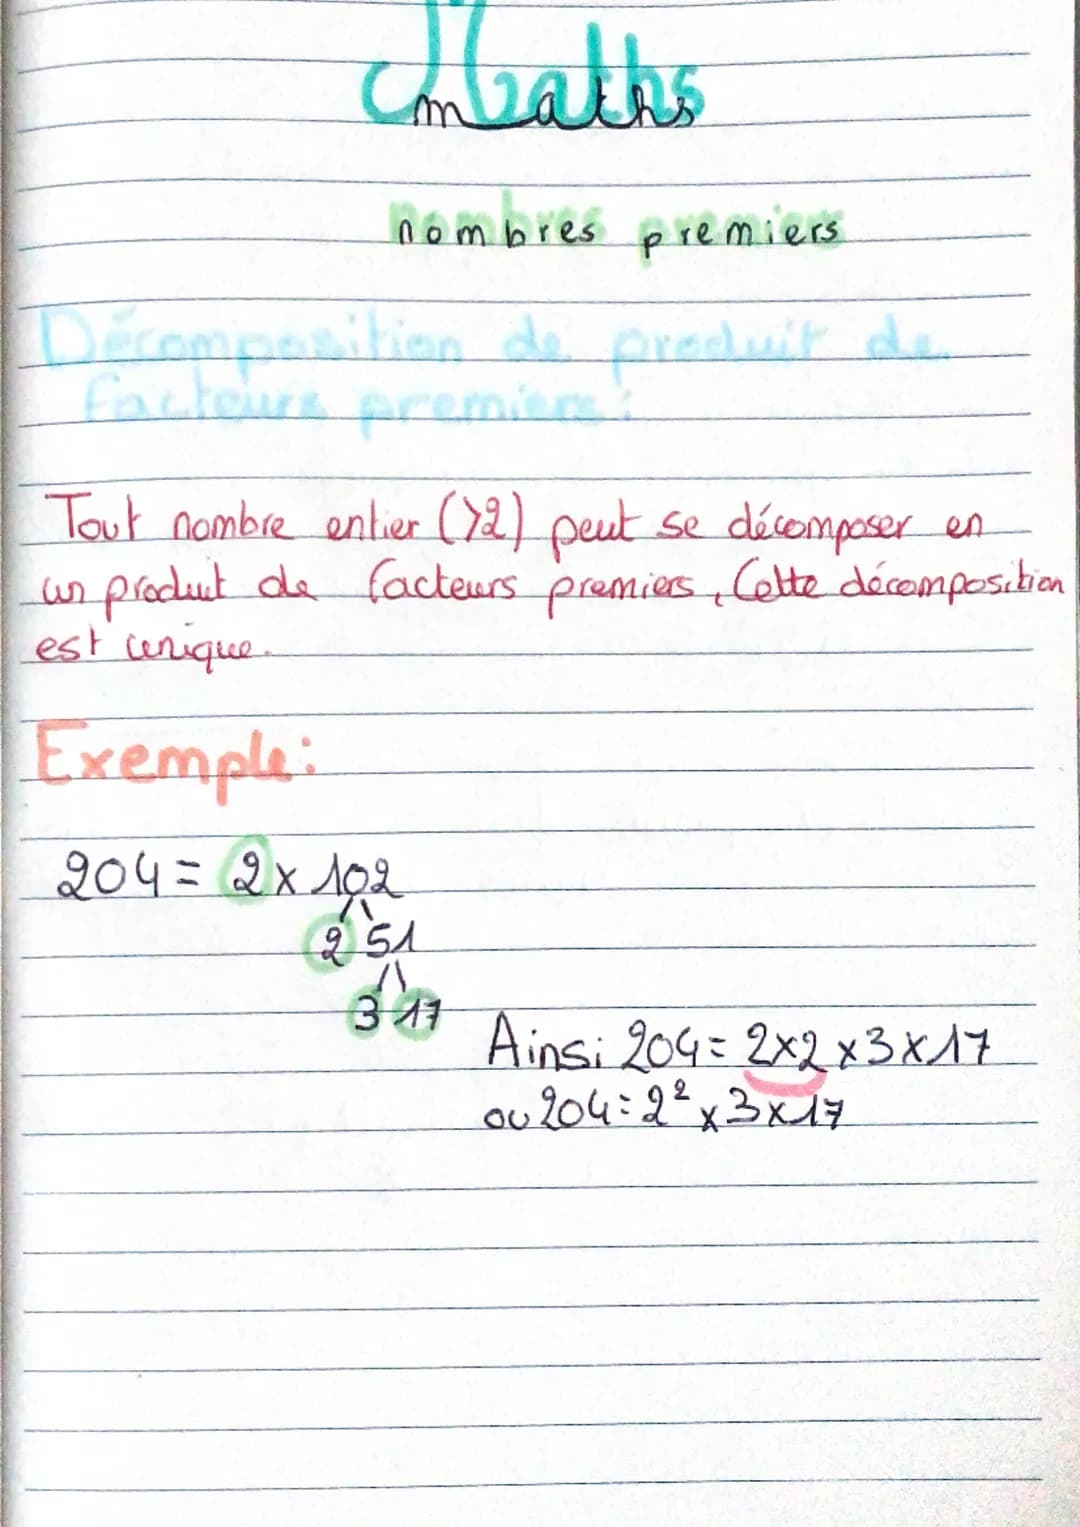 Maths
nombres premiers
Décomposition de produit de
facteurs premiers :
Tout nombre entier (>2) peut se décomposer en
un produit de facteurs premiers, Cette décomposition
est unique.
Exemple:
204 = 2 x 102
2 51
3 17
Ainsi 204 = 2x2 x3x17
ou 204 = 2² x 3x17